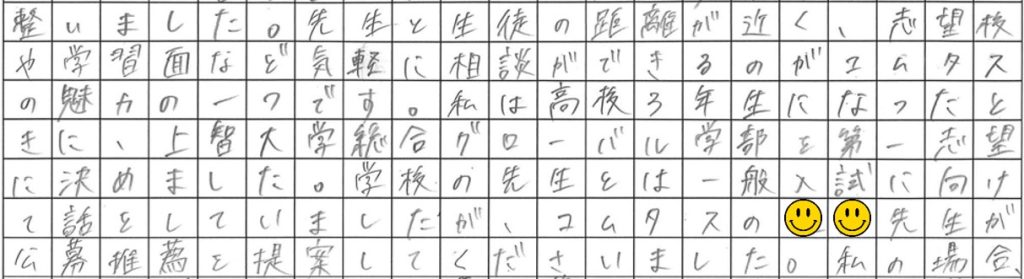 整いました。先生と生徒の距離が近く、志望校
や学習面など気軽に相談ができるのがコムタス
の魅力の一つです。私は高校3年生になったと
きに、上智大学総合グローバル学部を第一志望
に決めました。学校の先生とは一般入試に向け
て話をしていましたが、コムタスの先生が
公募推薦を提案してくださいました。私の場合、